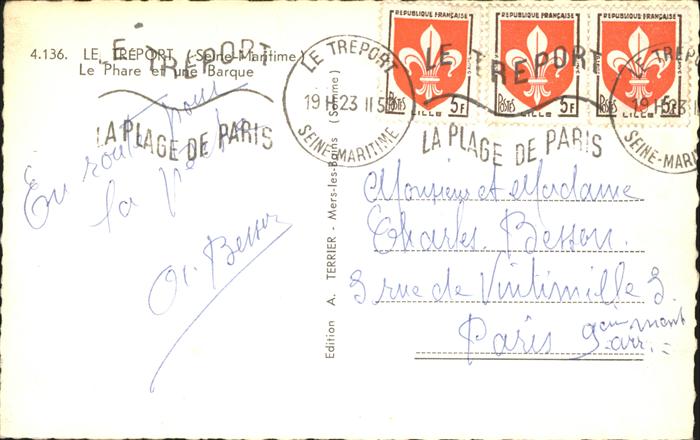 4.136. LE TRÉPORT (Seine-Maritime)
Le Phare et une Barque
LE TRÉPORT
LA PLAGE DE PARIS
LE TRÉPORT
19 H 23 II 5
SEINE-MARITIME
RÉPUBLIQUE FRANÇAISE
POSTES
5F
LILLE
RÉPUBLIQUE FRANÇAISE
POSTES
5F
LILLE
RÉPUBLIQUE FRANÇAISE
POSTES
5F
LILLE
LE TRÉPORT
LA PLAGE DE PARIS
LE TRÉPORT
SEINE-MARITIME
En route pour
la
Besson
Edition A. TERRIER - Mers-les-Bains (Somme)
Monsieur et Madame
Charles Besson.
3 rue de Vintimille 3.
Paris 9
arr.